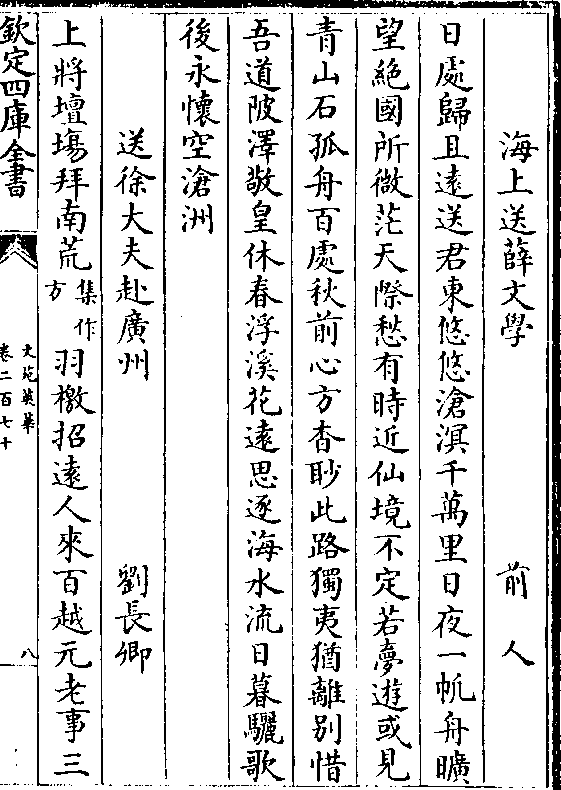 海上送薛文學　前人
日處歸且遠送君東悠悠滄溟千萬里日夜一帆舟曠
望絶國所微茫天際愁有時近仙境不定若夢遊或見
青山石孤舟百處秋前心方杳眇此路獨夷猶離别惜
吾道陂澤敬皇休春浮溪花遠思逐海水流日暮驪歌
後永懷空滄洲
送徐大夫赴廣州　劉長卿
上將壇塲拜南荒集作方羽檄招遠人來百越元老事三
欽定四庫全書
文苑英華
卷二百七十
八